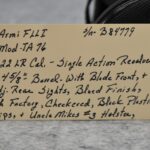 Armi FLLI S/N B84779
Mod-TA 76
22 LR Cal. - Single Action Revolver
4 5/8" Barrel - With Blade Front, +
Adj. Rear Sights, Blued Finish,
Factory, Checkered, Black Plastic
+ Uncle Mikes #3 Holster,